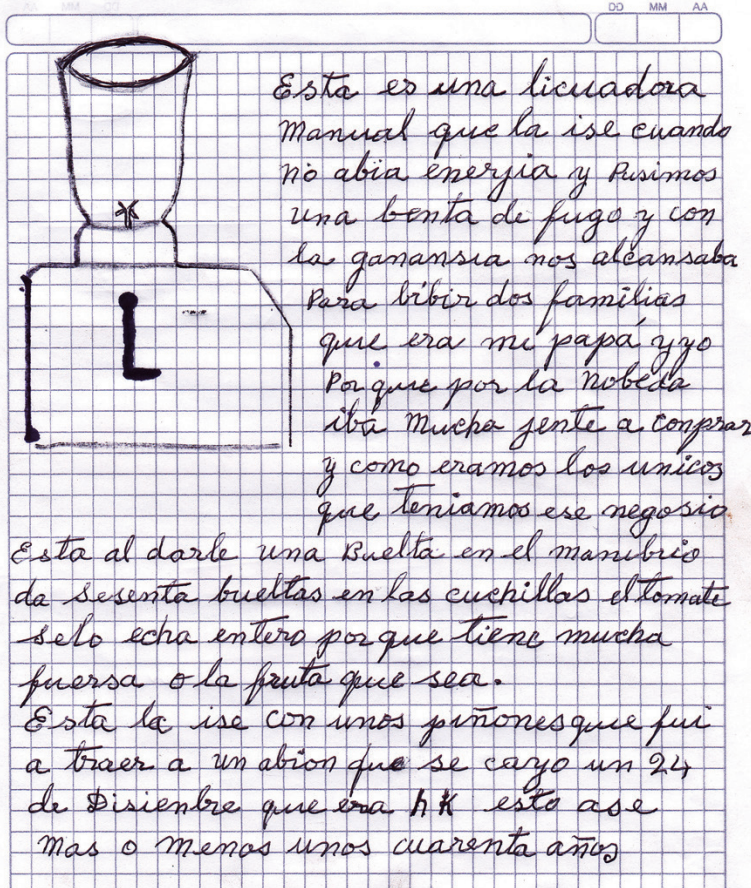 DD MM AA
Esta es una licuadora
Manual que la ise cuando
no abia enerjia y Pusimos
una benta de fugo y con
la ganansia nos alcansaba
Para bibir dos familias
que era mi papá y yo
Por que por la nobeda
iba Mucha jente a conprar
y como eramos los unicos
que teniamos ese negosio
Esta al darle una Buelta en el manibrio
da sesenta bueltas en las cuchillas el tomate
selo echa entero porque tiene mucha
fuersa o la fruta que sea.
Esta la ise con unos piñones que fui
a traer a un abion que se cayo un 24
de Disienbre que era hk esto ase
mas o menos unos cuarenta años